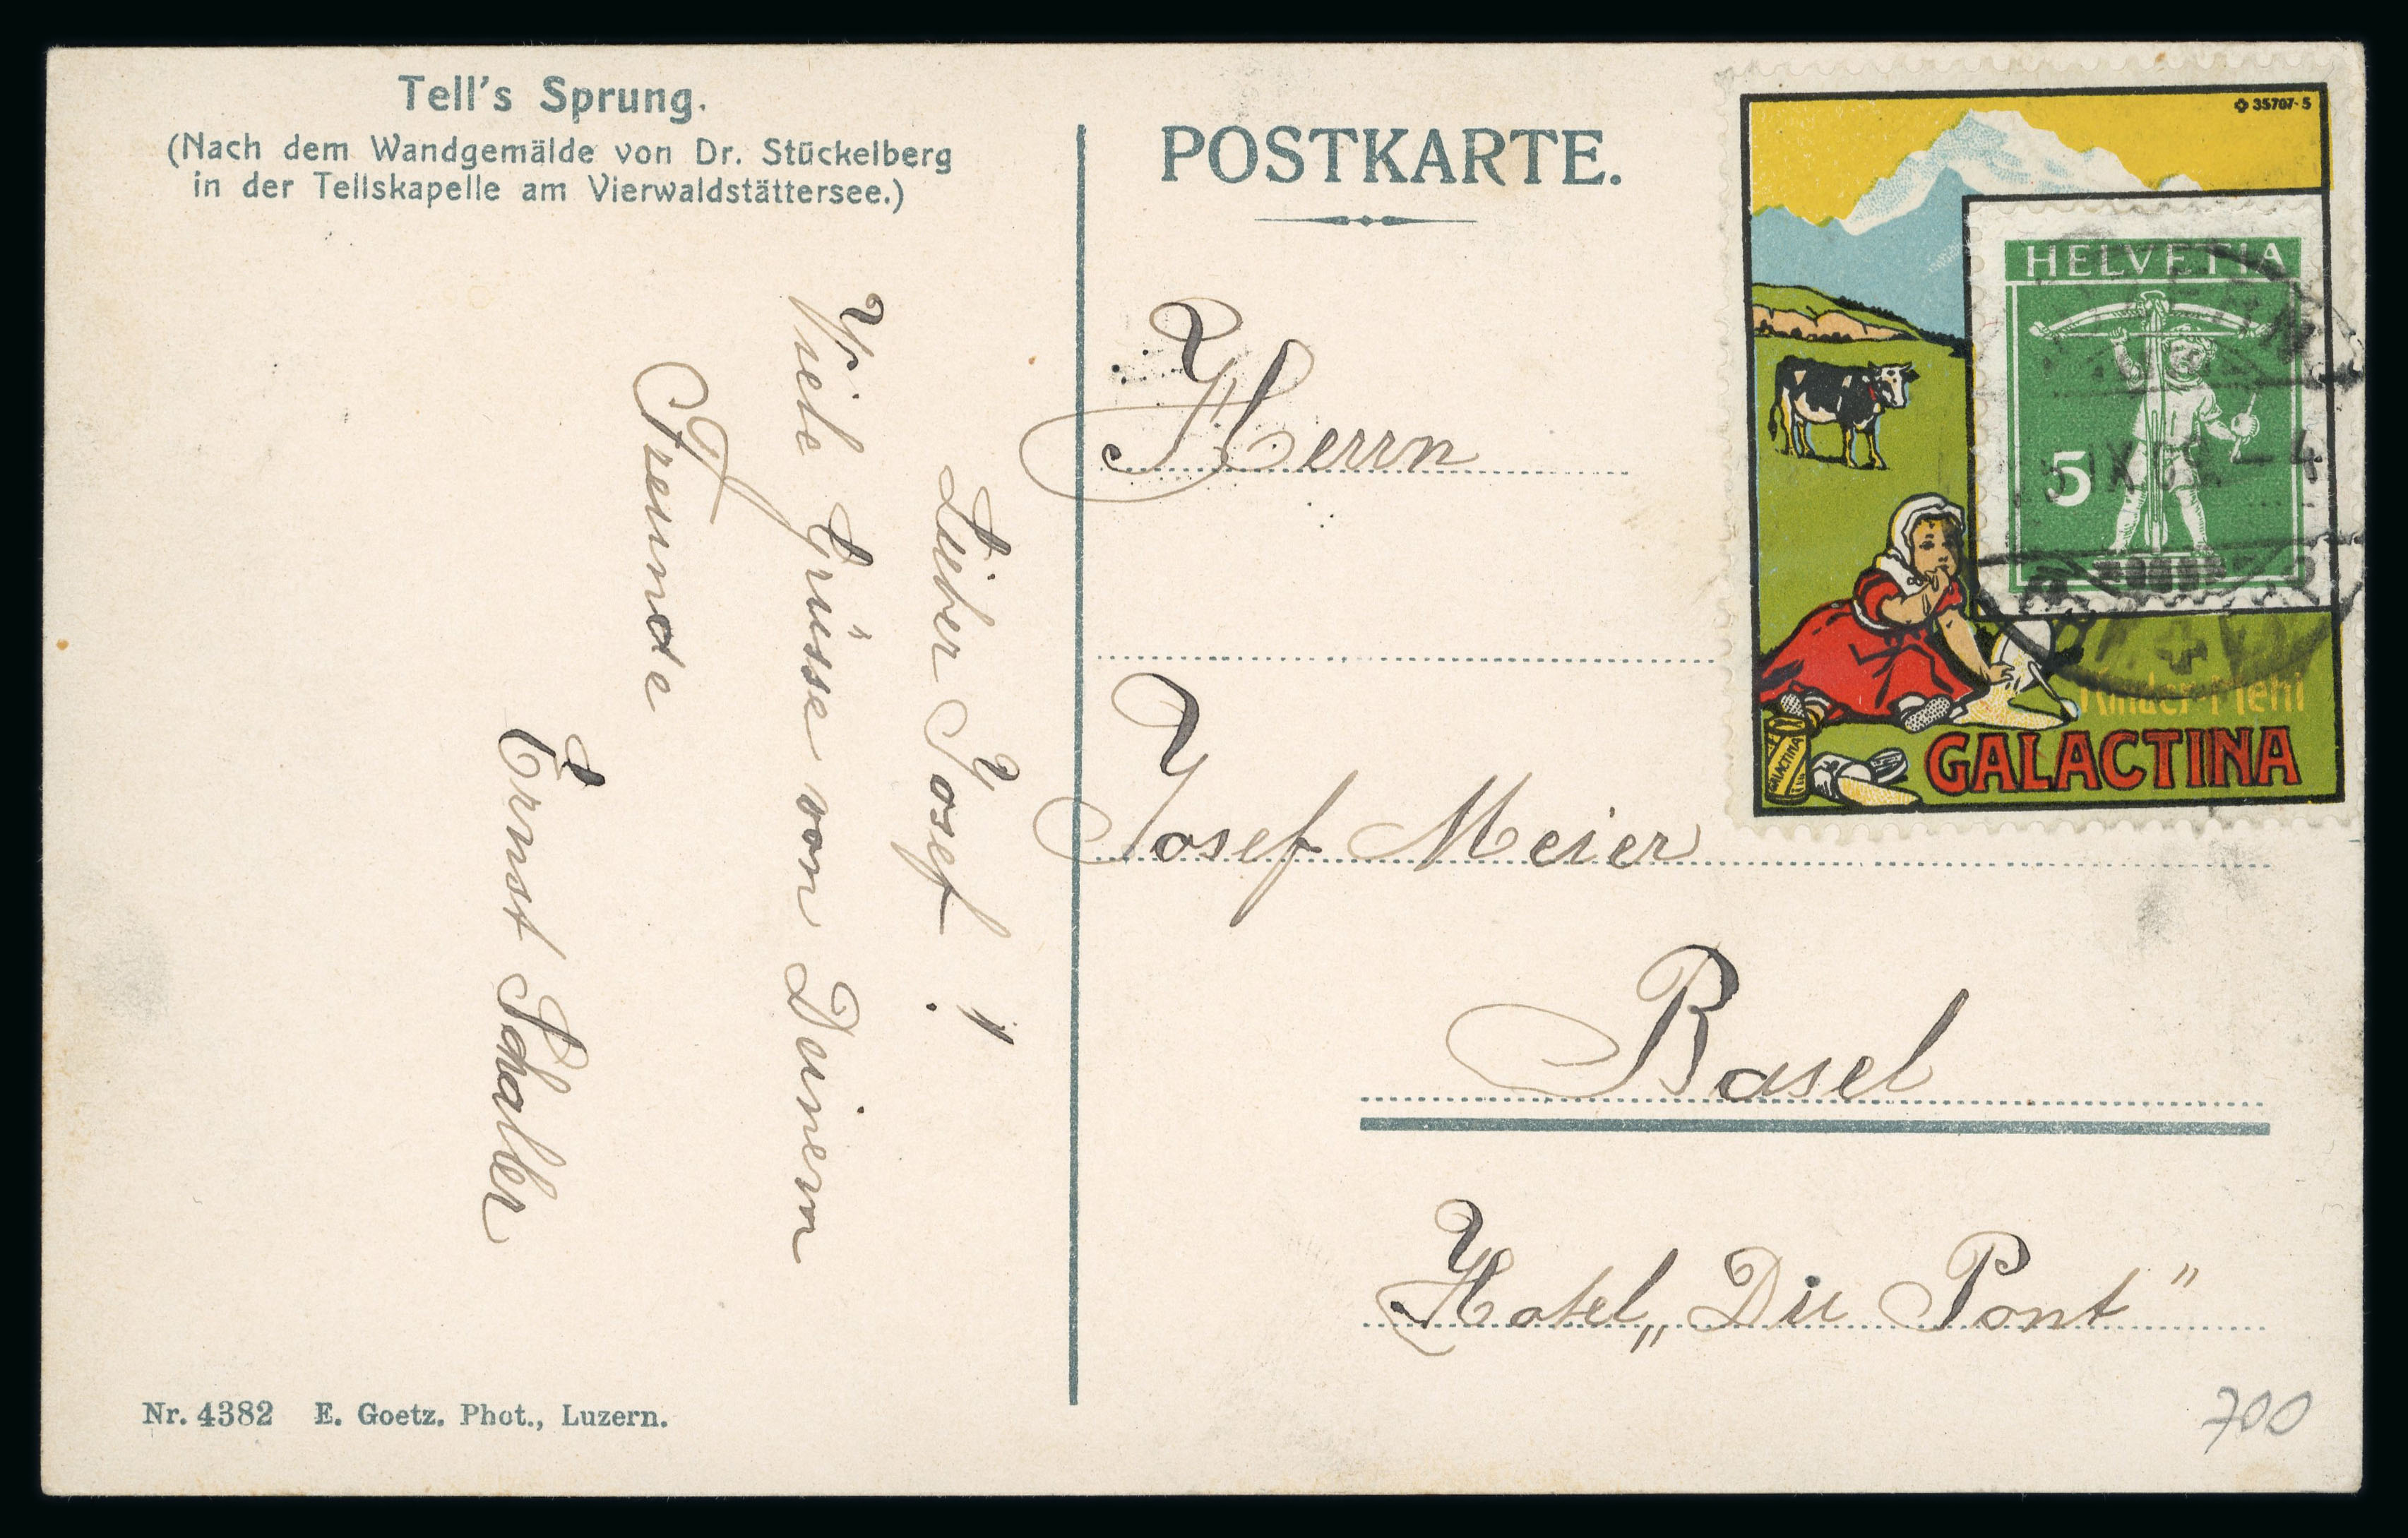 Tell's Sprung.
(Nach dem Wandgemälde von Dr. Stückelberg
in der Tellskapelle am Vierwaldstättersee.)
Lieber Josef!
Viele Grüsse von Deinem
Freunde
Ernst Schaller
Nr. 4382 E. Goetz. Phot., Luzern.
POSTKARTE.
Herrn
Josef Meier
Basel
Hotel „Du Pont"
700
35707-5
HELVETIA
5
Kinder-Mehl
GALACTINA
GALACTINA